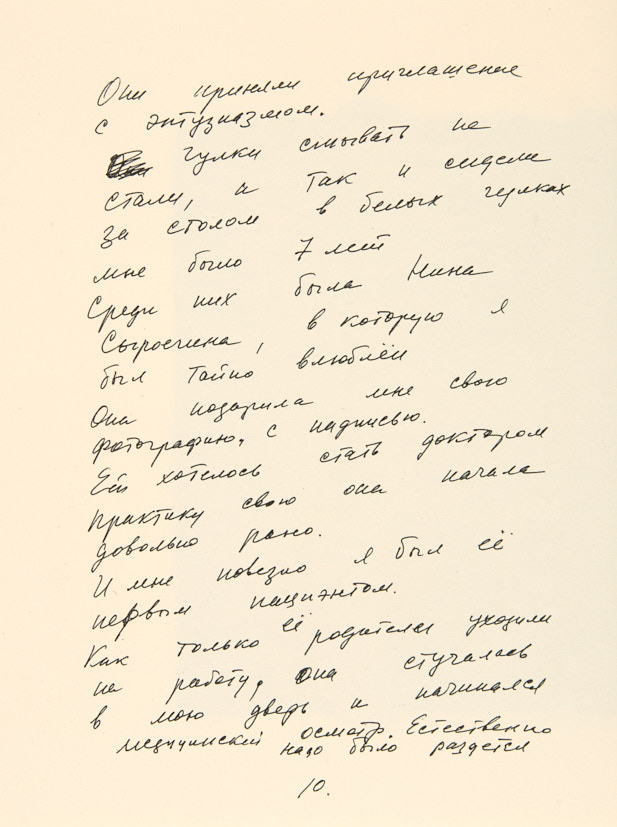 Они приняли приглашение
с энтузиазмом.
гулки смывать не
стали, и так и сидели
за столом в белых гулках
мне было 7 лет
Среди них была Нина
Сыроегина, в которую я
был тайно влюблён
Она подарила мне свою
фотографию, с надписью.
Ей хотелось стать доктором
практику свою она начала
довольно рано.
И мне повезло я был её
первым пациэнтом.
Как только её родители уходили
на работу, она стучалась
в мою дверь и начинался
медицинский осмотр. Естественно
надо было раздется
10.